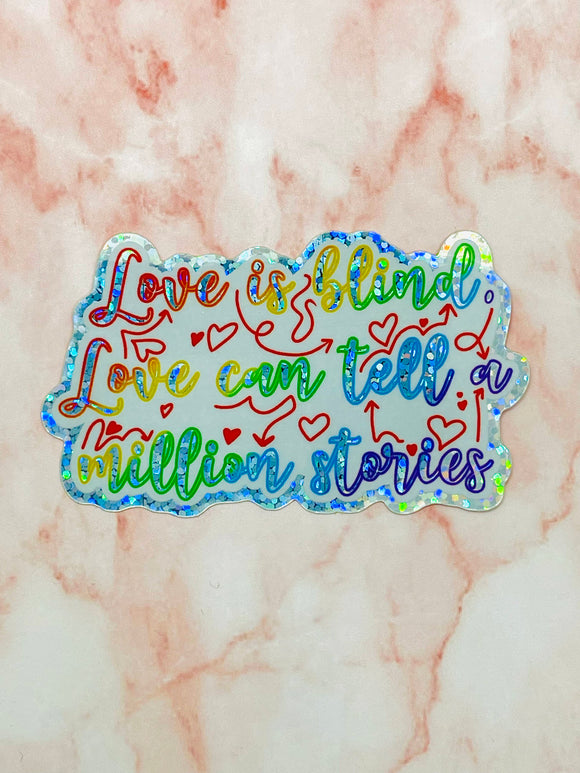 Love is blind.
Love can tell a
million stories.